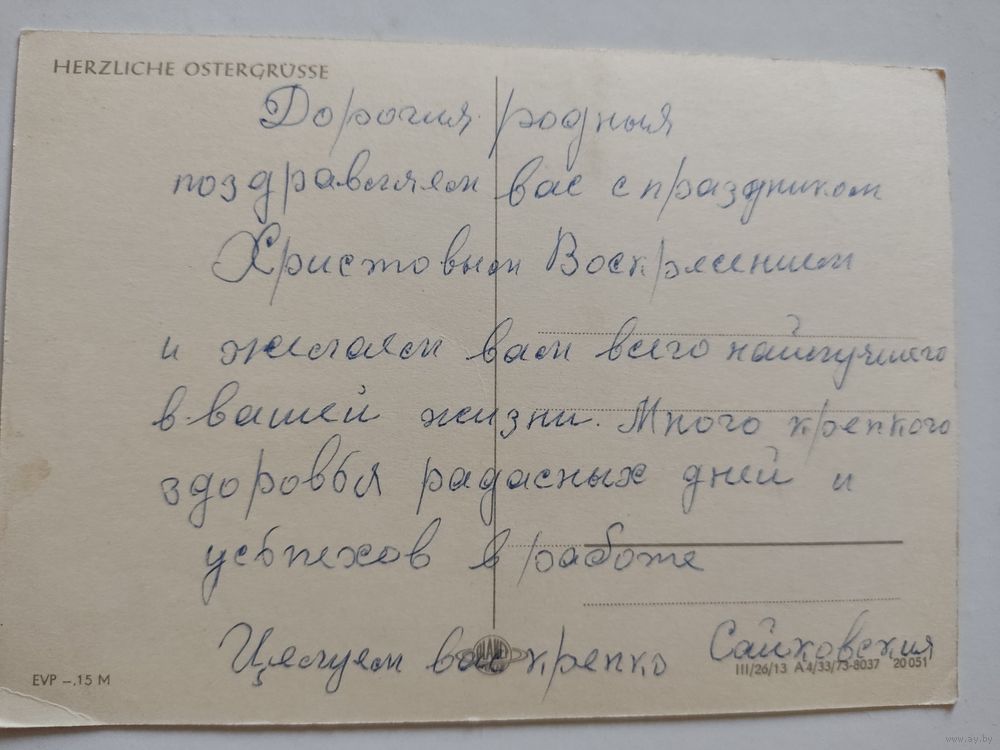 HERZLICHE OSTERGRÜSSE
Дорогия родныя
поздравляем вас с праздником
Христовым Воскрясением
и желаем вам всего найлучшего
в вашей жизни. Много крепкого
здоровья радасных дней и
усьпехов в работе
Целуем вас крепко Сайковския
EVP –,15 M
PLANET
III/26/13 A 4/33/73-8037 20 051
www.ay.by